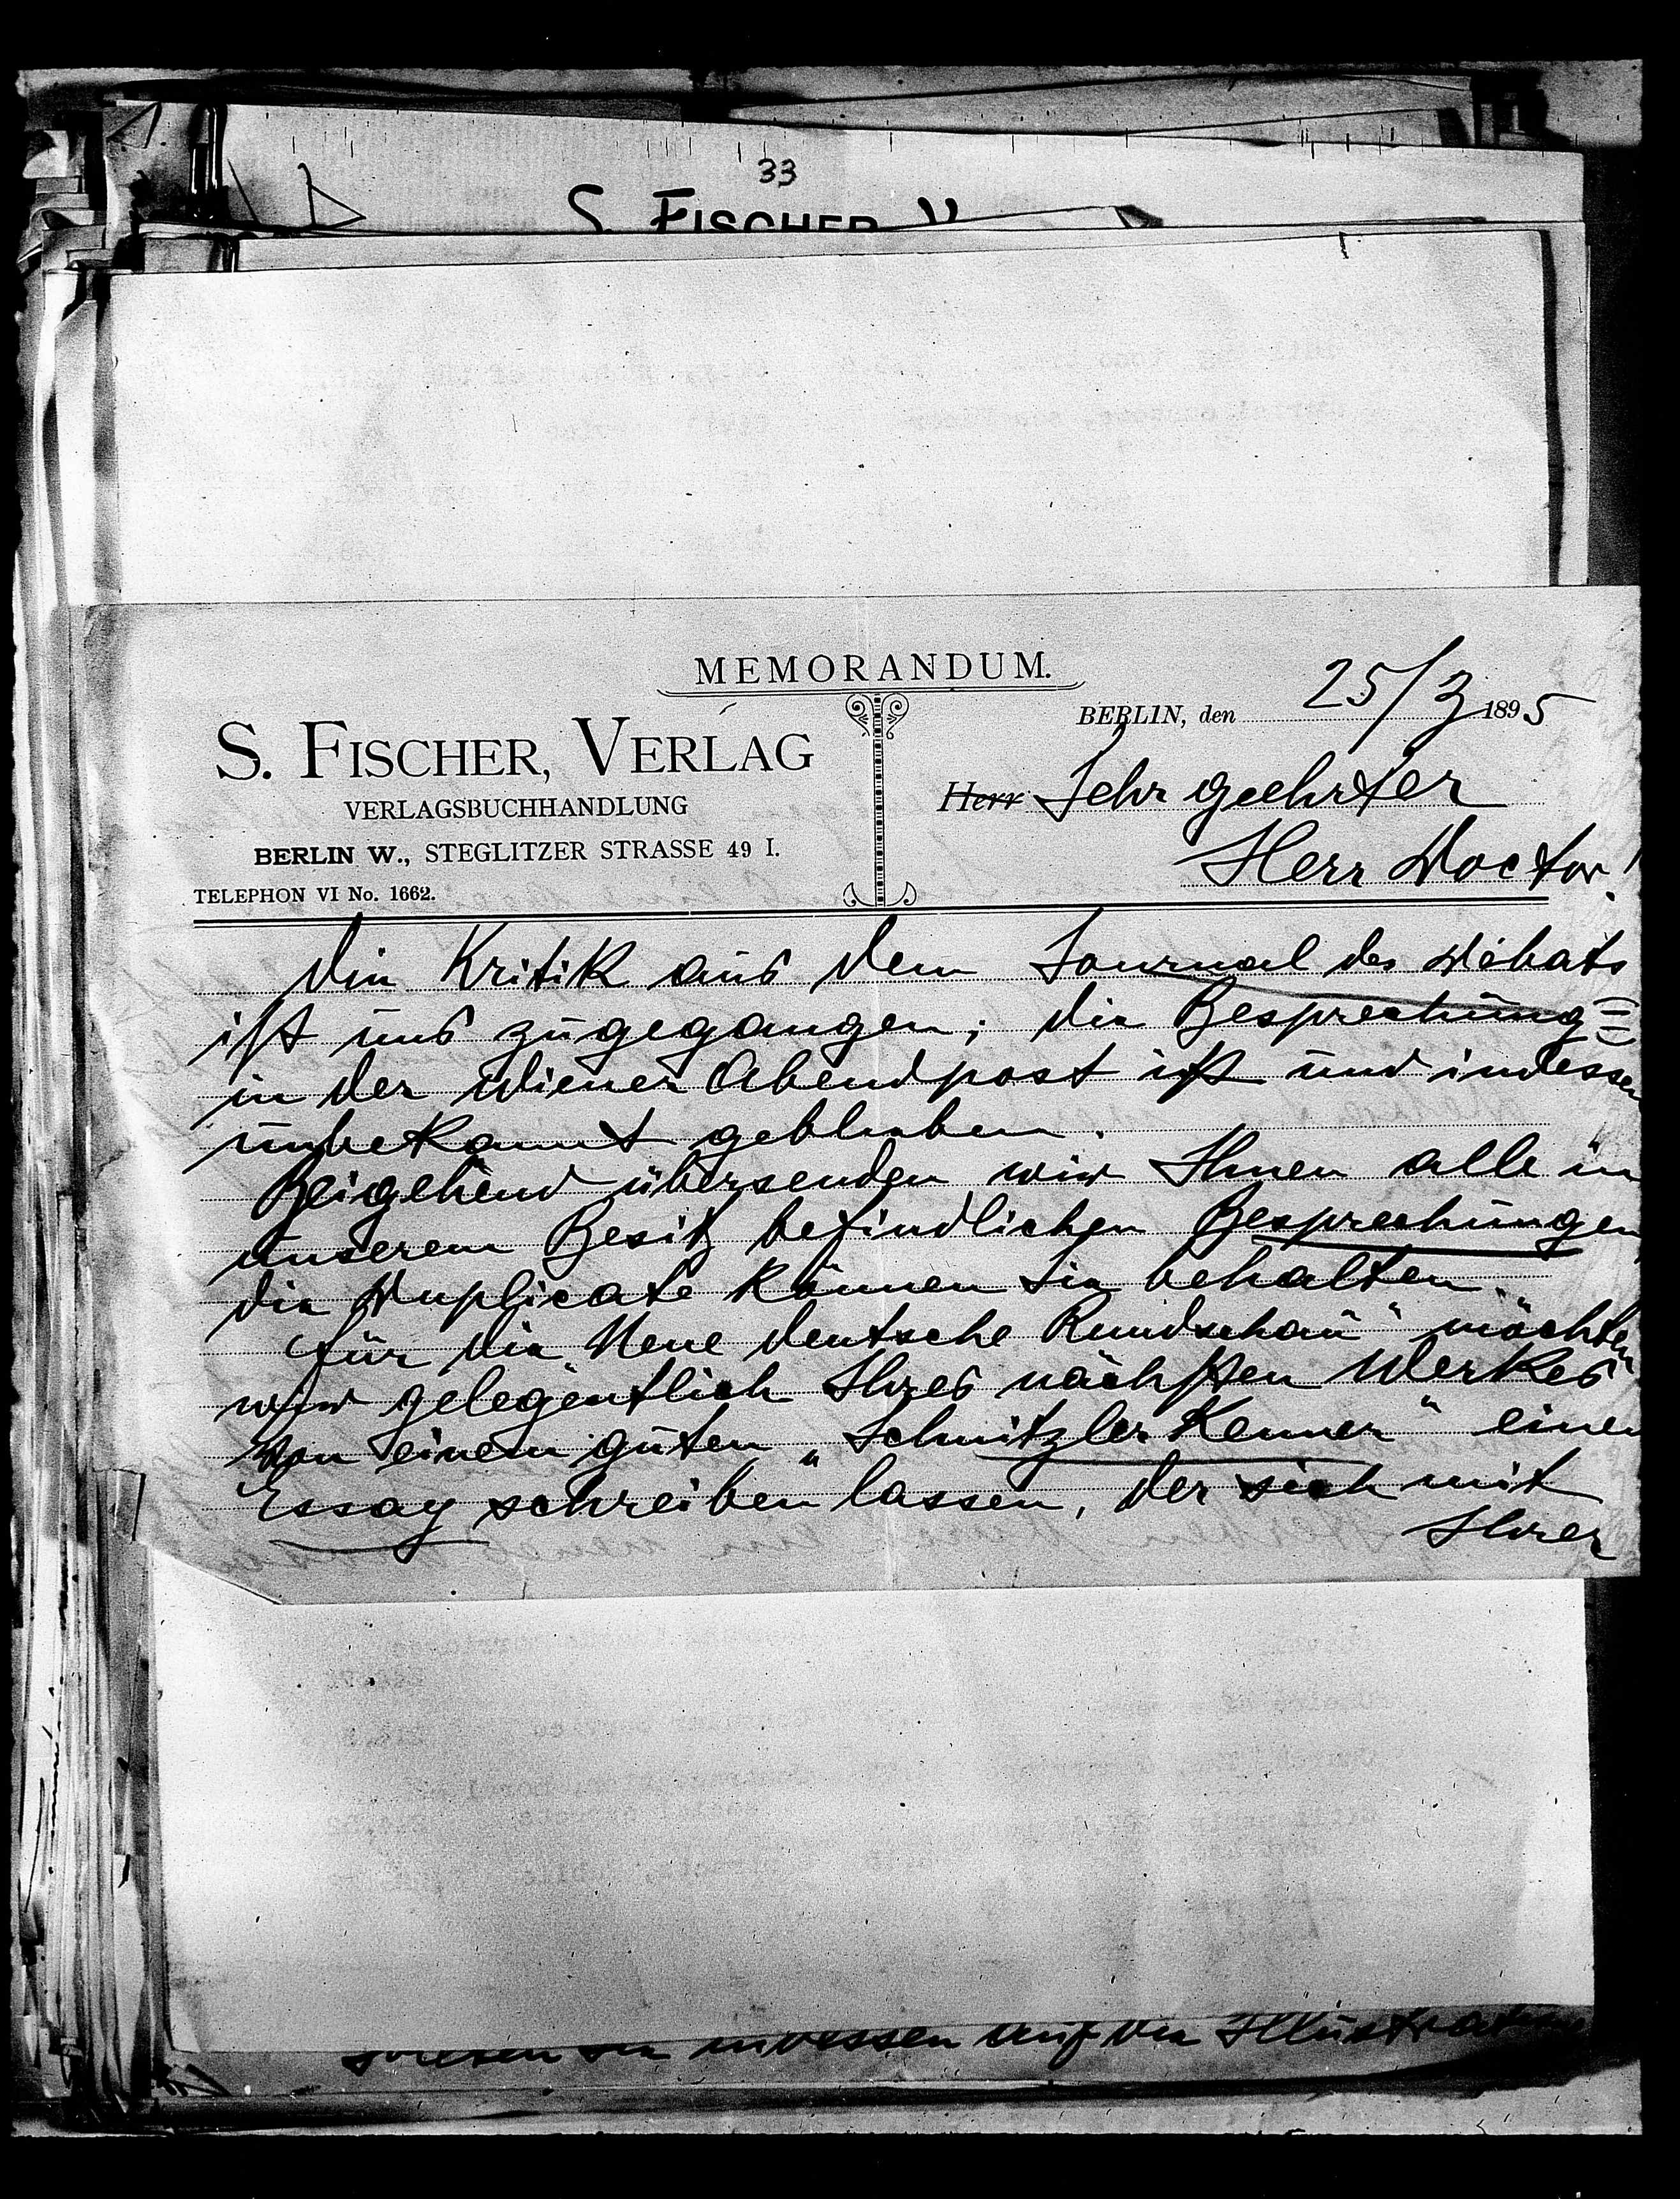 33
S. FISCHER V
MEMORANDUM.
BERLIN, den 25/3 1895
S. FISCHER, VERLAG
VERLAGSBUCHHANDLUNG
BERLIN W., STEGLITZER STRASSE 49 I.
TELEPHON VI No. 1662.
Herr Sehr geehrter
Herr Doctor!
Die Kritik aus dem Journal des Débats
ist uns zugegangen; die Besprechung
in der Wiener Abendpost ist und indessen
unbekannt geblieben.
Beigehend übersenden wir Ihnen alle in
unserem Besitz befindlichen Besprechungen
die Duplicate können Sie behalten.
Für die „Neue deutsche Rundschau“ möchten
wir gelegentlich Ihres nächsten Werkes
von einem guten „Schnitzler Kenner“ einen
Essay schreiben lassen, der sich mit
Ihrer
indessen auf die Illustrationen